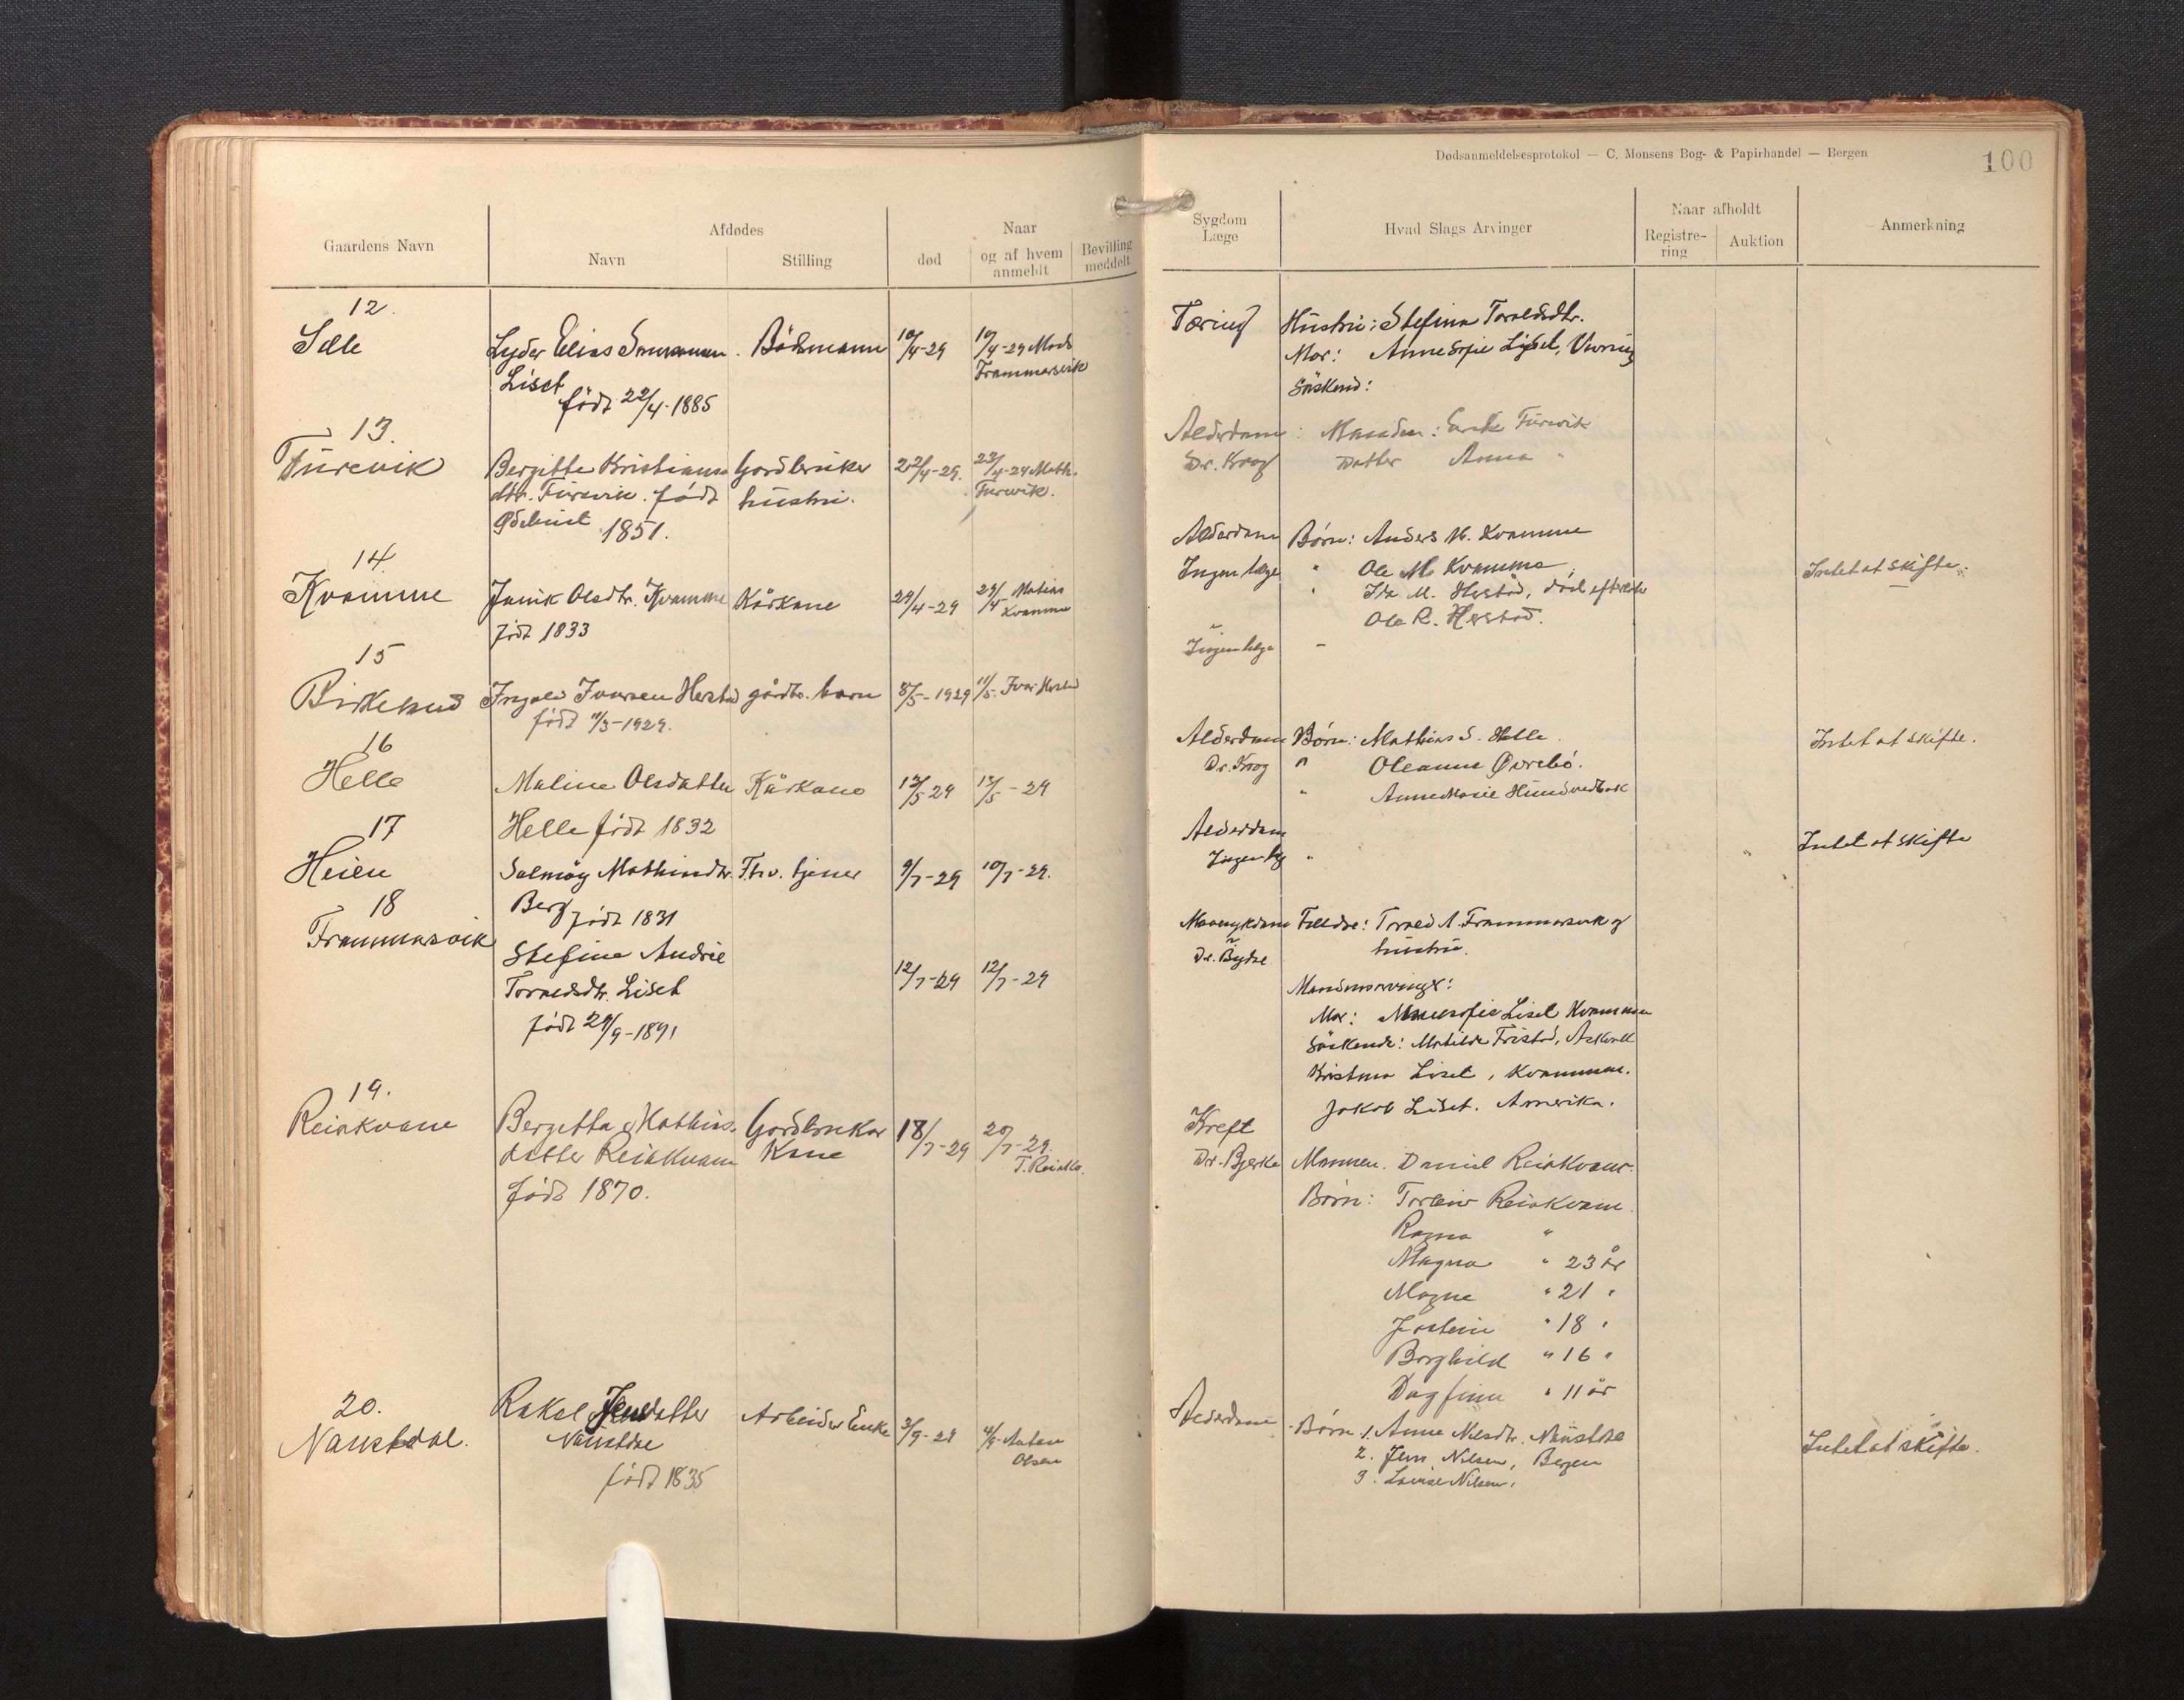 Dødsanmeldelsesprotokol — C. Monsens Bog- & Papirhandel — Bergen
100
Gaardens Navn
Afdødes
Navn
Stilling
Naar
død
og af hvem anmeldt
Bevilling meddelt
Sygdom
Læge
Hvad Slags Arvinger
Naar afholdt
Registre-
ring
Auktion
Anmerkning
12.
Lyder Elias
Liset
født 22/4-1885
10/4-29
10/4-29 Mads
Frammarsvik
Tæring
Hustru: Stefina Toraldsdtr.
Mor: Anne Sofie Liset,
Søskend:
13.
Furevik
Bergitte Kristians
dtr. Furevik. født
1851.
Gardbruker
hustru.
22/4-29.
22/4-29 Math.
Furevik.
Alderdom:
Dr. Krog
Manden: Erik Furevik
Datter Anna "
14.
Kvamme
Olsdtr. Kvamme
født 1833
Kårkone
29/4-29
29/4 Matias
Kvamme
Alderdom
Ingen læge
Børn: Anders M. Kvamme
" Ole M. Kvamme
" M. Herstad, død
Ole R. Herstad.
Intet at skifte.
15
Birkelund
Iversen Herstad
født 11/3-1929.
gårdbr. barn
8/5-1929
11/5. Ivar Herstad
Ingen læge
16
Helle
Maline Olsdatter
Helle født 1832
Kårkone
12/5-29
13/5-29
Alderdom
Dr. Krog
Børn: Mathias S. Helle.
" Oleanna Øvrebö.
" Anne Marie Hundvedbak
Intet at skifte.
17
Heien
Salmöy Mathiasdtr.
Berg født 1831
Thv. tjener
9/7-29
10/7-29.
Alderdom
Ingen læge
Intet at skifte
18
Frammarsvik
Stefine Andrie
Toraldsdtr. Liset
født 29/9-1891
12/7-29
12/7-29
Mavesykdom
Dr.
Feldre: Torald A. Frammarsvik og
hustru.
Mandens arvinger:
Mor: Annesofie Liset Kvammen
Søskende: Matilde Fristad, Askvoll
Kristina Liset, Kvammen.
Jakob Liset. Amerika.
19.
Reiakvam
Bergetta Mathias.
datter Reiakvam
født 1870.
Gardbruker
Kone
18/7-29
20/7-29.
T. Reiakv.
Kreft
Dr. Bjerke
Mannen. Daniel Reiakvam.
Børn: Torleiv Reiakvam.
Ragna "
Magna " 23 år
Magne " 21 "
Jostein " 18 "
Borghild " 16 "
Dagfinn " 11 år
20.
Naustdal.
Rakel Jensdatter
Naustdal
født 1835
Arbeider Enke
3/9-29
4/9. Anton
Olsen
Alderdom
Børn 1. Anne Nilsdtr. Naustdal
2. Jens Nilsen, Bergen
3. Louise Nilsen.
Intet at skifte.